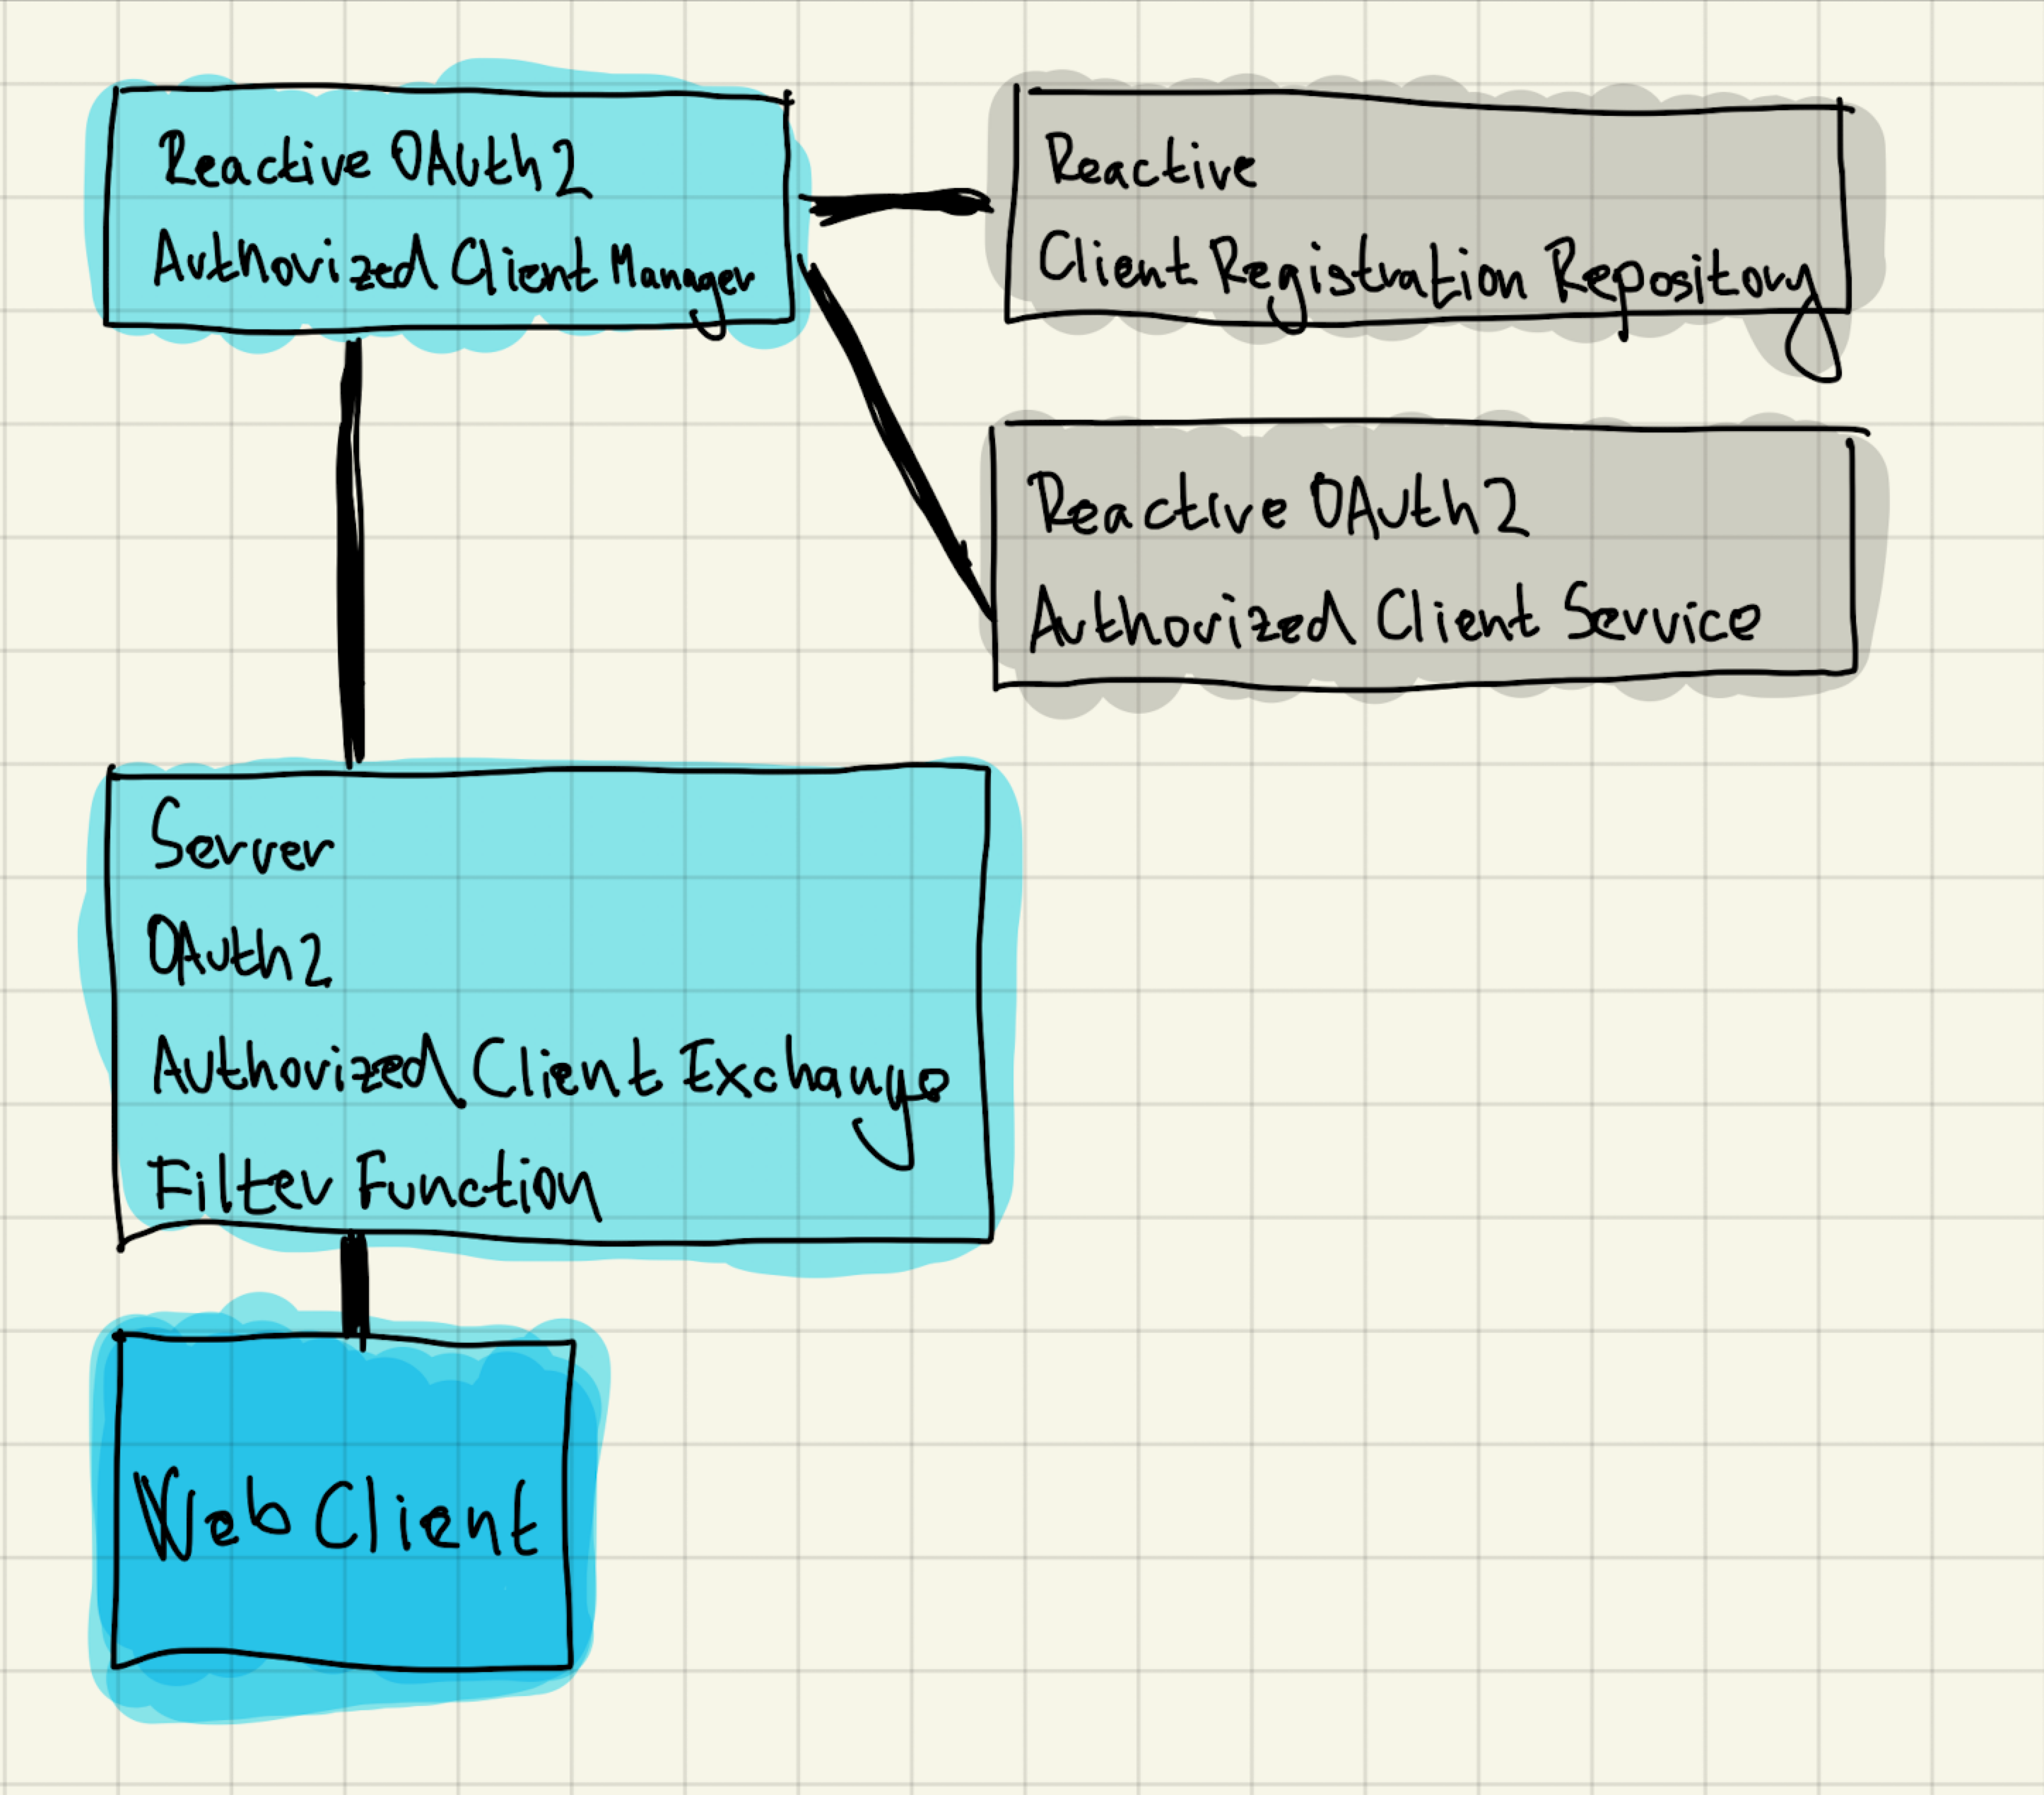 Reactive OAuth2
Authorized Client Manager
Reactive
Client Registration Repository
Reactive OAuth2
Authorized Client Service
Server
OAuth2
Authorized Client Exchange
Filter Function
Web Client